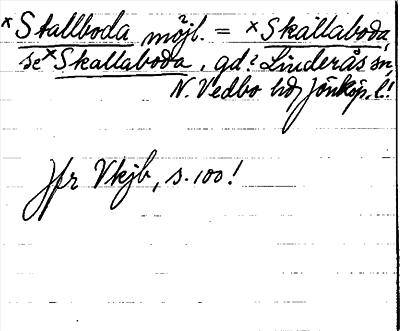 ×Stallboda möjl. = ×Skállaboda,
se ×Skallaboda, gd: Linderås sn,
N. Vedbo hd, Jönköp. l!
Jfr Vkjb, s. 100!